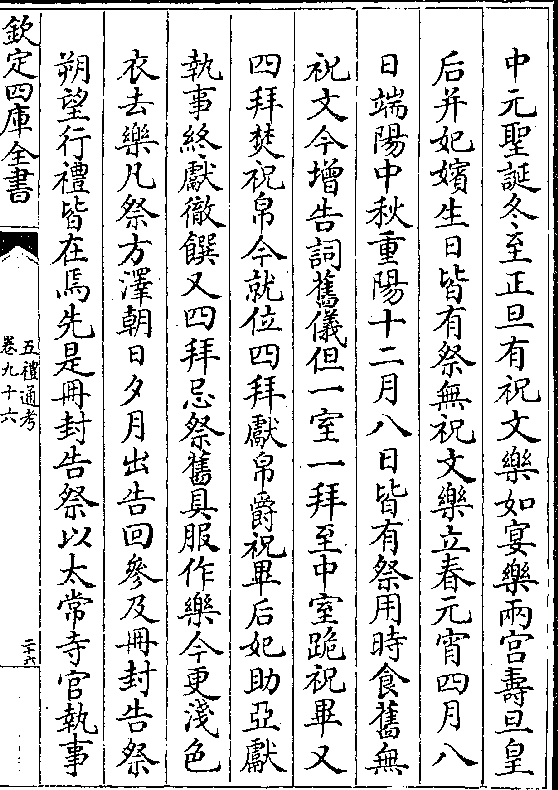 中元聖誕冬至正旦有祝文樂如宴樂兩宫壽旦皇
后并妃嬪生日皆有祭無祝文樂立春元宵四月八
日端陽中秋重陽十二月八日皆有祭用時食舊無
祝文今增告詞舊儀但一室一拜至中室跪祝畢又
四拜焚祝帛今就位四拜獻帛爵祝畢后妃助亞獻
執事終獻徹饌又四拜忌祭舊具服作樂今更淺色
衣去樂凡祭方澤朝日夕月出告回參及冊封告祭
朔望行禮皆在焉先是冊封告祭以太常寺官執事
欽定四庫全書
五禮通考
卷九十六
二十六